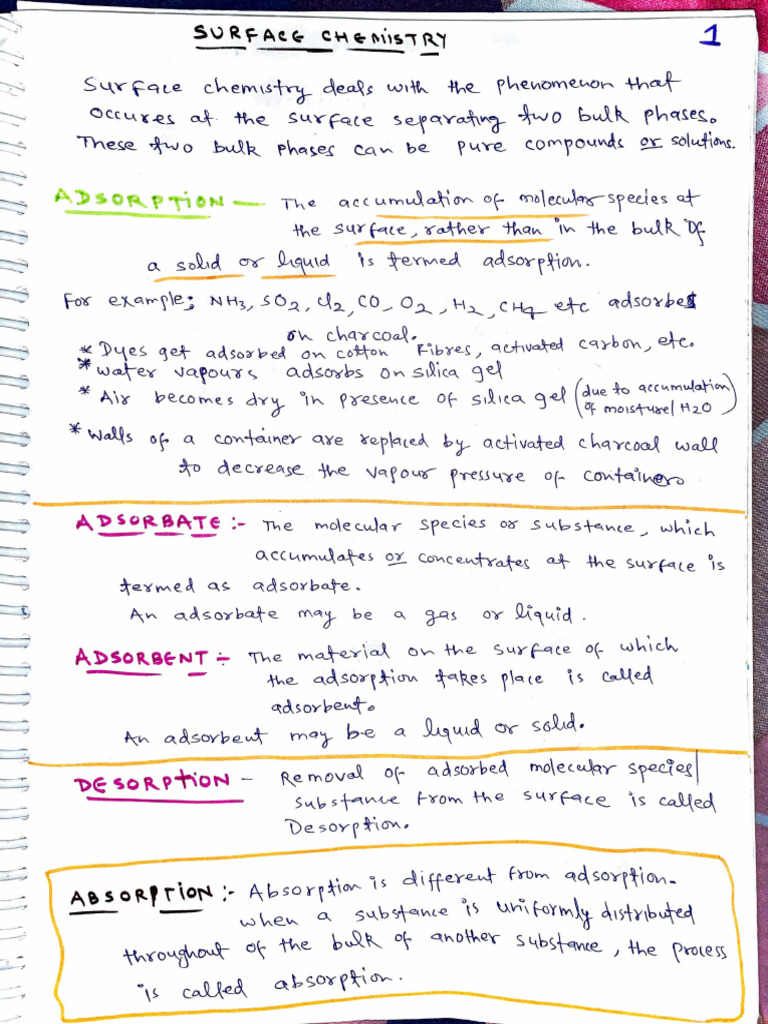 SURFACE CHEMISTRY
1
Surface chemistry deals with the phenomenon that
occures at the surface separating two bulk phases.
These two bulk phases can be pure compounds or solutions.
ADSORPTION — The accumulation of molecular species at
the surface, rather than in the bulk of
a solid or liquid is termed adsorption.
For example; NH3, SO2, Cl2, CO, O2, H2, CH4 etc adsorbes
on charcoal.
* Dyes get adsorbed on cotton Fibres, activated carbon, etc.
* water vapours adsorbs on silica gel
* Air becomes dry in presence of silica gel (due to accumulation
of moisture/H2O)
* Walls of a container are replaced by activated charcoal wall
to decrease the vapour pressure of container.
ADSORBATE :- The molecular species or substance, which
accumulates or concentrates at the surface is
termed as adsorbate.
An adsorbate may be a gas or liquid.
ADSORBENT :- The material on the surface of which
the adsorption takes place is called
adsorbent.
An adsorbent may be a liquid or solid.
DESORPTION - Removal of adsorbed molecular species/
substance from the surface is called
Desorption.
ABSORPTION :- Absorption is different from adsorption.
when a substance is uniformly distributed
throughout of the bulk of another substance, the process
is called absorption.